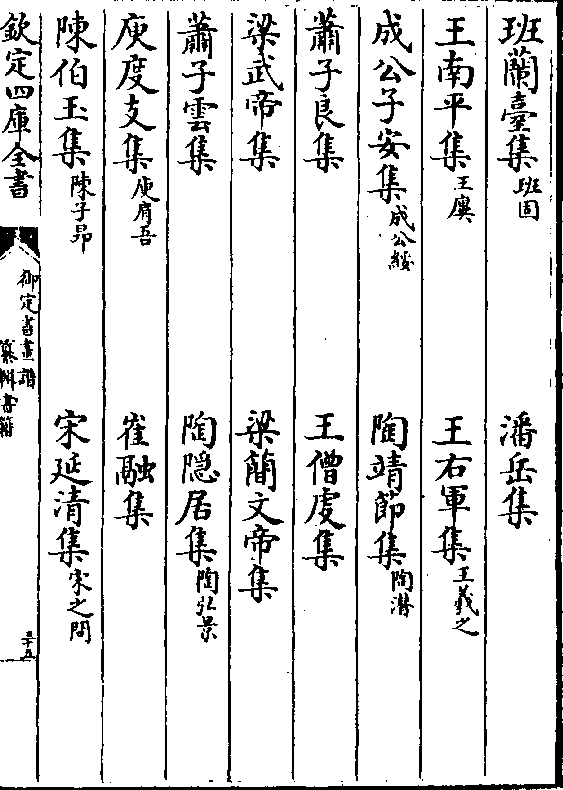 班蘭臺集班固 潘岳集
王南平集王廙 王右軍集王羲之
成公子安集成公綏 陶靖節集陶潛
蕭子良集 王僧虔集
梁武帝集 梁簡文帝集
蕭子雲集 陶隠居集陶弘景
庾度支集庾肩吾 崔融集
陳伯玉集陳子昻 宋延清集宋之問
欽定四庫全書
御定書畫譜
纂輯書籍
三十五